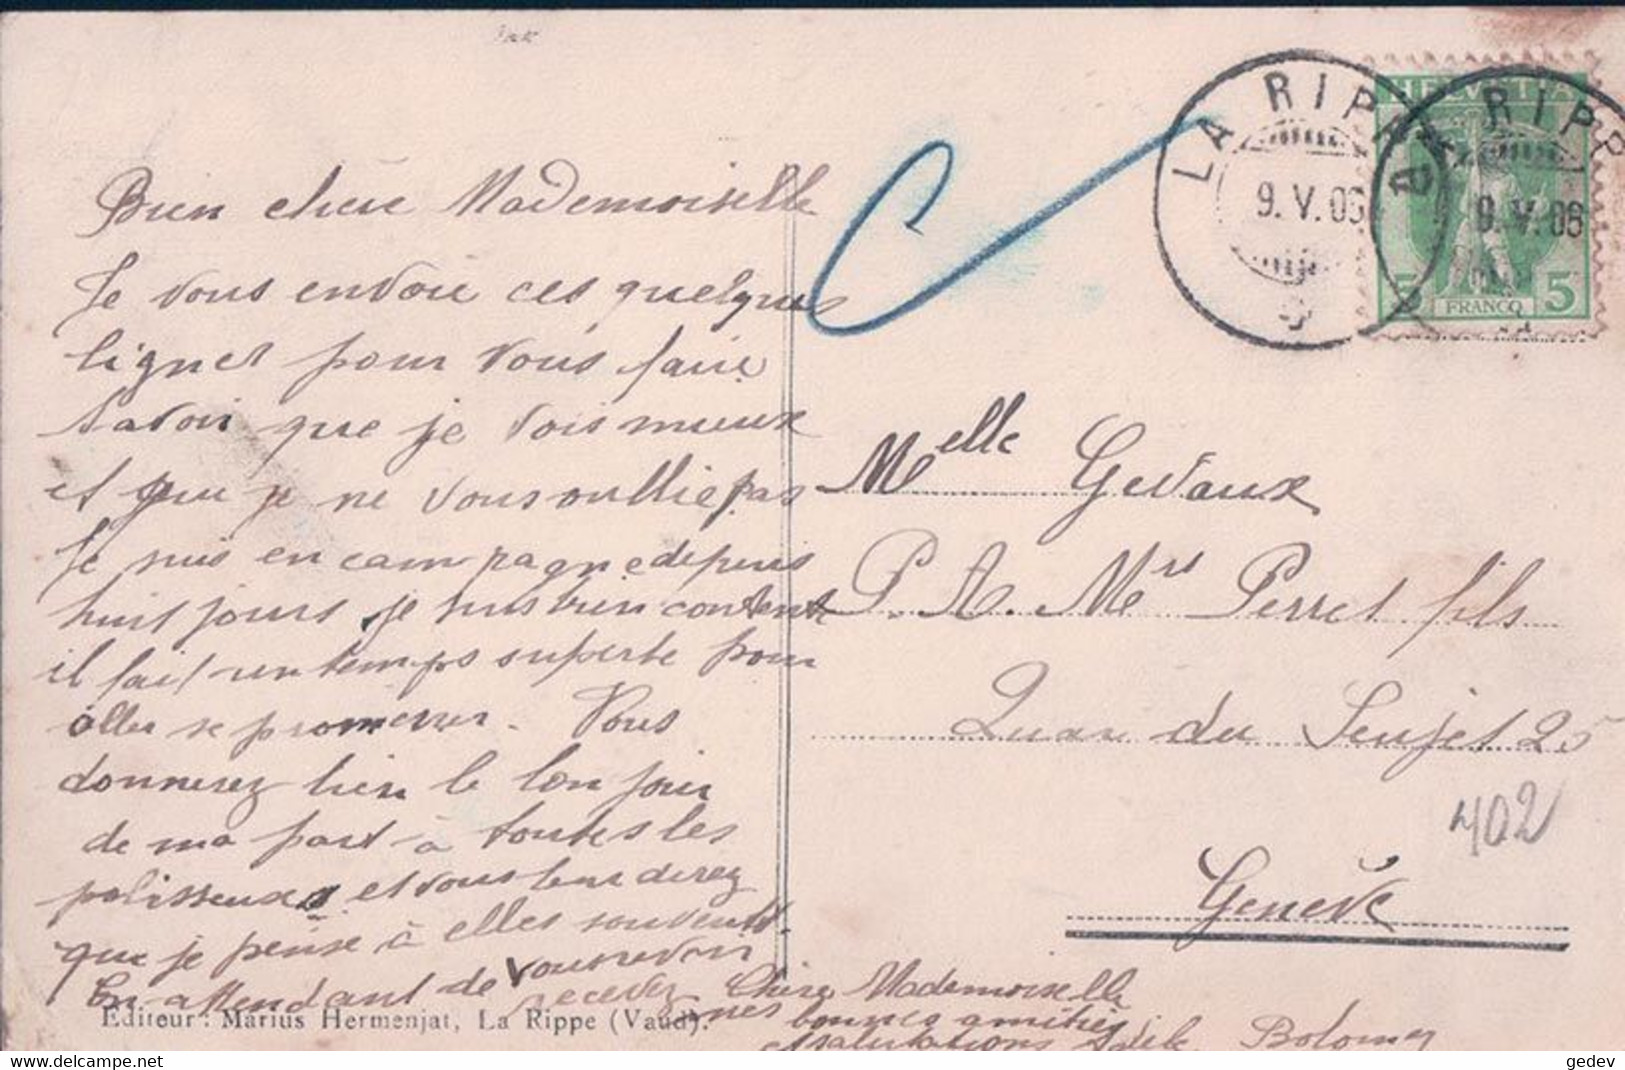 Bien chère Mademoiselle
Je vous envoie ces quelques
lignes pour vous faire
savoir que je vois mieux
et que je ne vous oublie pas
Je suis en campagne depuis
huit jours je suis bien contente
il fait un temps superbe pour
aller se promener. Vous
donnerez bien le bonjour
de ma part à toutes les
polisseuses et vous leur direz
que je pense à elles souvent
En attendant de vous revoir
recevez Chère Mademoiselle
mes bonnes amitiés
et salutations Adèle Bolomey
Editeur: Marius Hermenjat, La Rippe (Vaud).
LA RIPPE
9.V.06
LA RIPPE
9.V.06
HELVETIA
5 FRANCO 5
Melle Gevaux
P. A. Mrs Perret fils
Quai du Seujet 25
402
Genève
gedev
www.delcampe.net